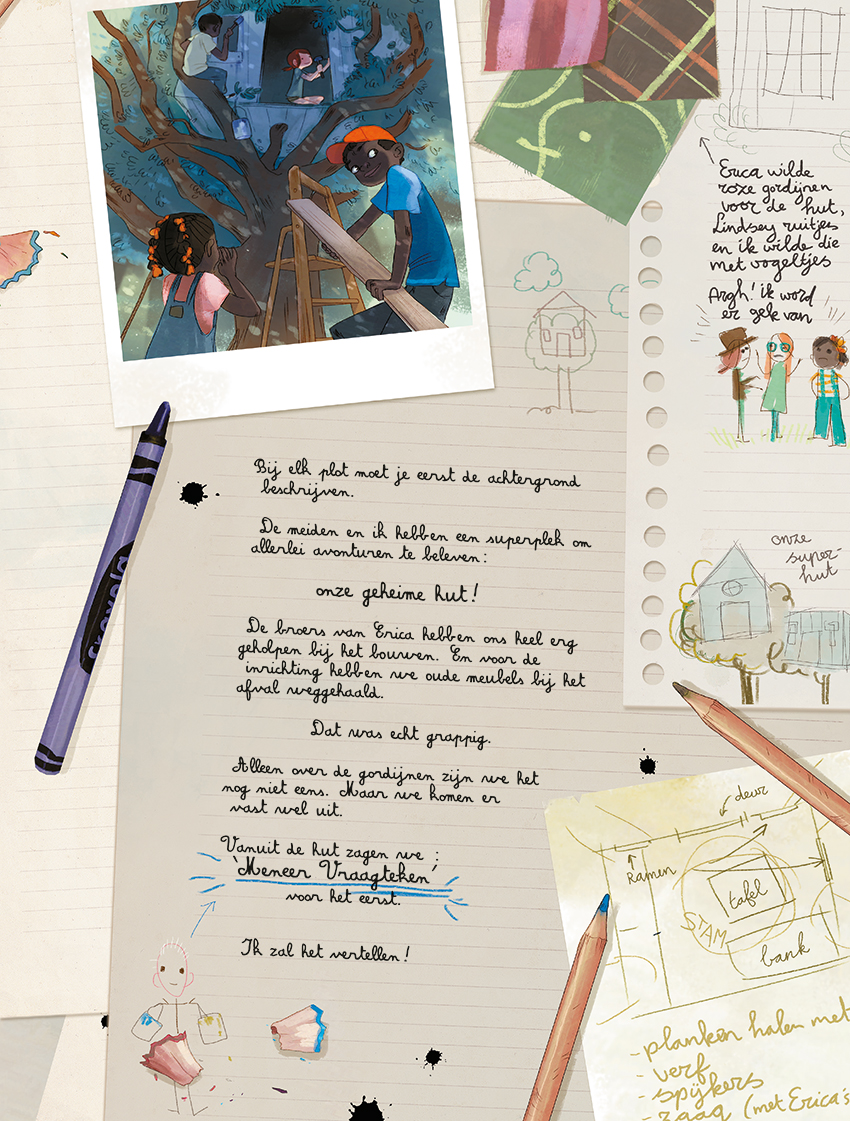 Erica wilde
roze gordijnen
voor de hut,
Lindsey ruitjes
en ik wilde die
met vogeltjes
Argh! ik word
er gek van
Bij elk plot moet je eerst de achtergrond
beschrijven.
De meiden en ik hebben een superplek om
allerlei avonturen te beleven:
onze geheime hut!
De broers van Erica hebben ons heel erg
geholpen bij het bouwen. En voor de
inrichting hebben we oude meubels bij het
afval weggehaald.
Dat was echt grappig.
Alleen over de gordijnen zijn we het
nog niet eens. Maar we komen er
vast wel uit.
Vanuit de hut zagen we :
'Meneer Vraagteken'
voor het eerst.
Ik zal het vertellen!
onze
super-
hut
deur
Ramen
tafel
STAM
bank
- planken halen met
- verf
- spijkers
- zaag (met Erica's